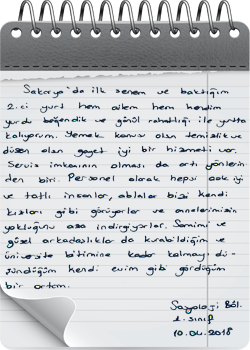 Sakarya'da ilk senem ve baktığım
2.ci yurt hem ailem hem kendim
yurdu beğendik ve gönül rahatlığı ile yurtta
kalıyorum. Yemek konusu olsun temizlik ve
düzen olsun gayet iyi bir hizmeti var.
Servis imkanının olması da artı yönlerin
den biri. Personel olarak hepsi çok iyi
ve tatlı insanlar, ablalar bizi kendi
kızları gibi görüyorlar ve annelerimizin
yokluğunu aza indirgiyorlar. Samimi ve
güzel arkadaşlıklar da kurabildiğim ve
üniversite bitimine kadar kalmayı dü-
şündüğüm kendi evim gibi gördüğüm
bir ortam.
Sosyoloji Böl.
1. sınıf
10.04.2018